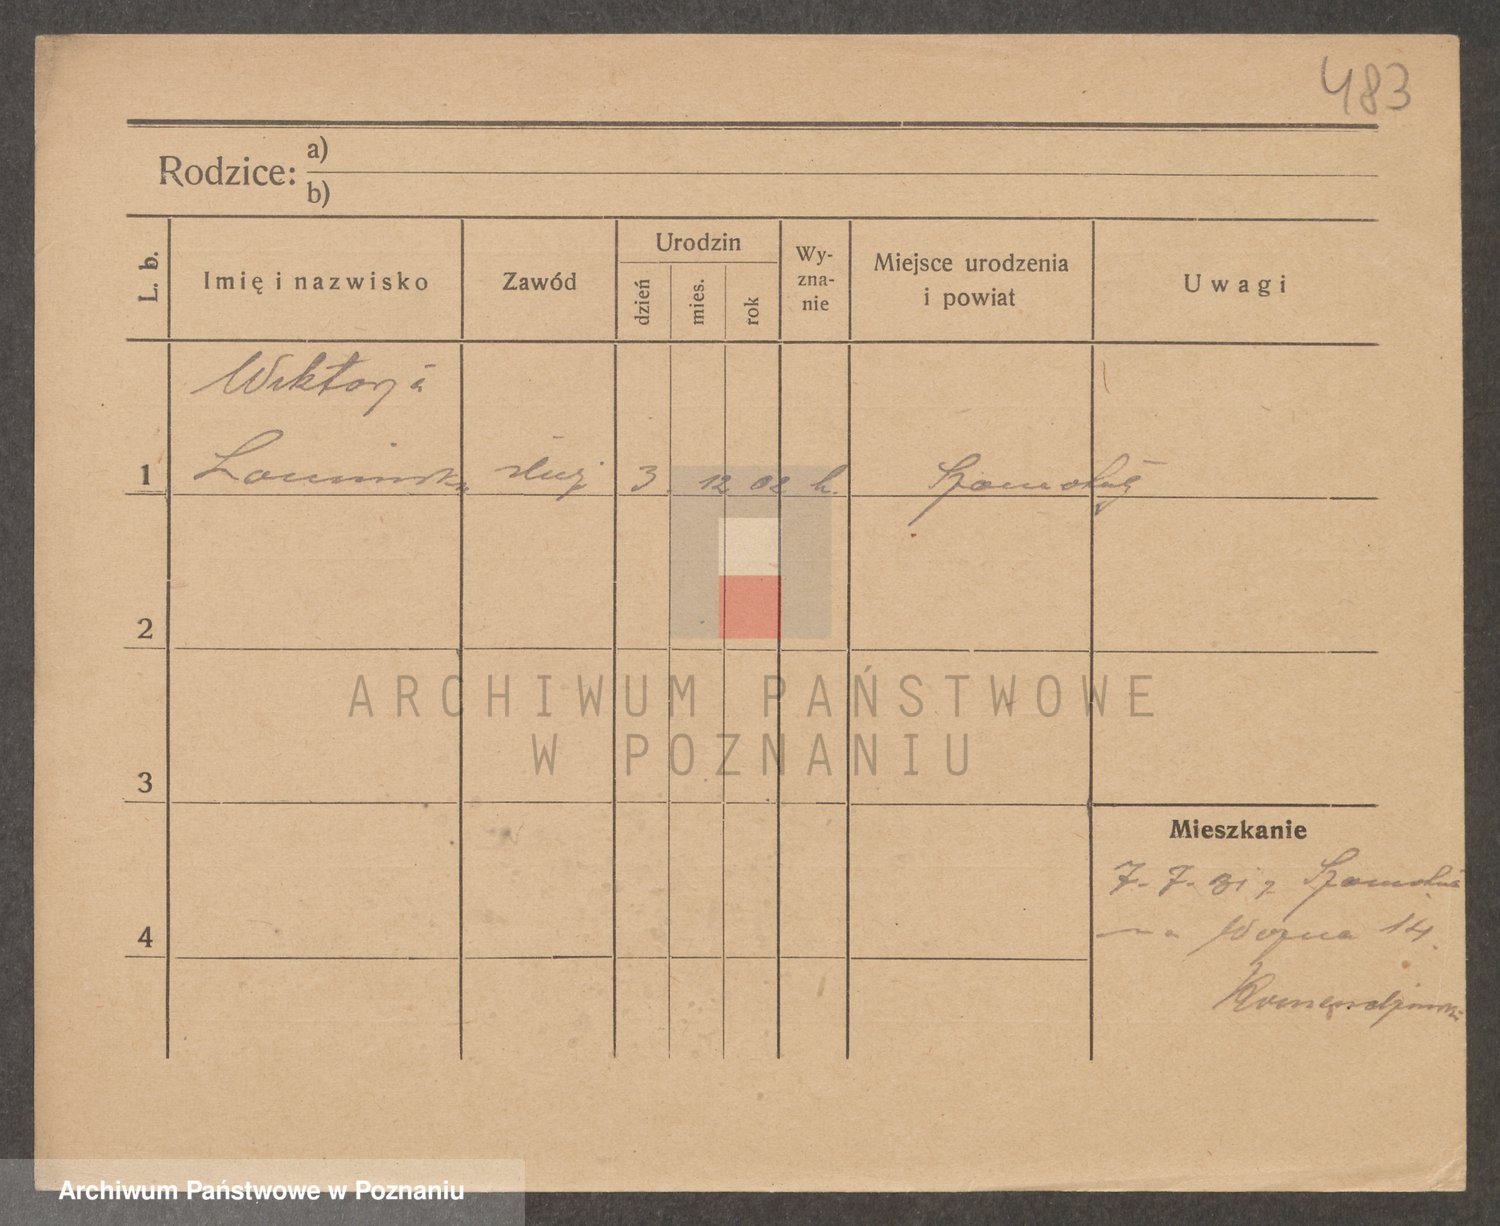 483
Rodzice: a)
b)
L. b.
Imię i nazwisko
Zawód
Urodzin
dzień
mies.
rok
Wy-
zna-
nie
Miejsce urodzenia
i powiat
Uwagi
Wiktorja
1 służ 3. 12 02 k. Szamotuły
2
ARCHIWUM PAŃSTWOWE
W POZNANIU
3
Mieszkanie
7. 7. 31 z Szamotuł
na Woźna 14.
4
Archiwum Państwowe w Poznaniu